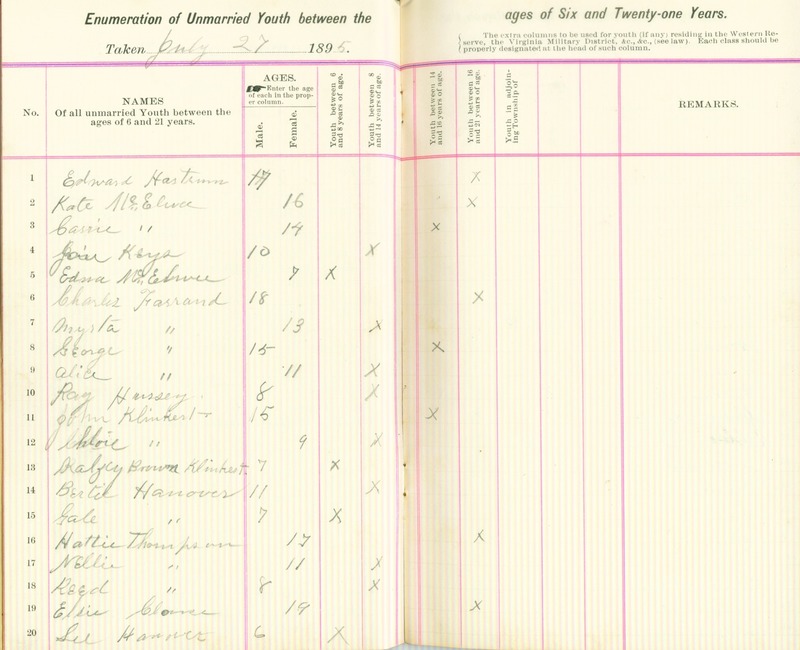 Enumeration of Unmarried Youth between the ages of Six and Twenty-one Years.
Taken July 27 1895.
The extra columns to be used for youth (if any) residing in the Western Re-
serve, the Virginia Military District, &c., &c., (see law). Each class should be
properly designated at the head of such column.
No.
NAMES
Of all unmarried Youth between the
ages of 6 and 21 years.
AGES.
Enter the age
of each in the prop-
er column.
Male.
Female.
Youth between 6
and 8 years of age.
Youth between 8
and 14 years of age.
Youth between 14
and 16 years of age.
Youth between 16
and 21 years of age.
Youth in adjoin-
ing Township of
REMARKS.
1 Edward 17 X
2 Kate McElwee 16 X
3 Carrie " 14 X
4 Keys 10 X
5 Edna McElwee 7 X
6 Charles Farrand 18 X
7 Myrta " 13 X
8 George " 15 X
9 Alice " 11 X
10 Ray Hussey 8 X
11 John Klinkert 15 X
12 Chloie " 9 X
13 Brown Klinkert 7 X
14 Bertie Hanover 11 X
15 Gale " 7 X
16 Hattie Thompson 17 X
17 Nellie " 11 X
18 Reed " 8 X
19 Elsie 19 X
20 Lee Hanover 6 X